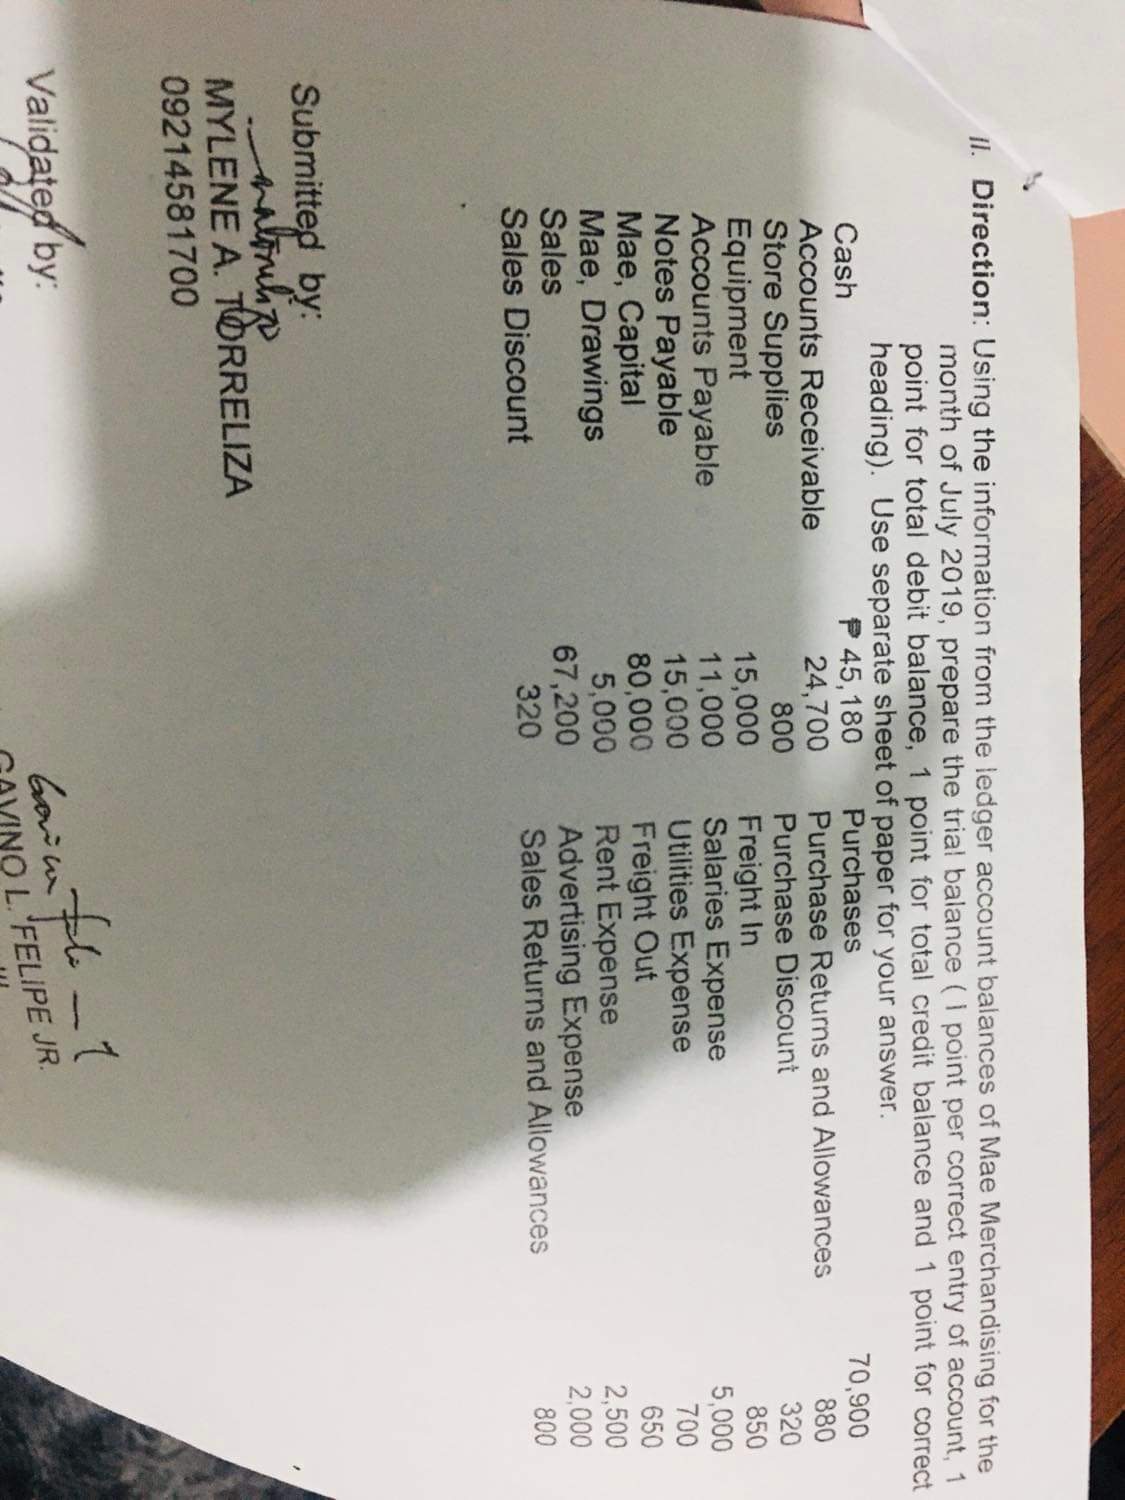 II. Direction: Using the information from the ledger account balances of Mae Merchandising for the
month of July 2019, prepare the trial balance ( 1 point per correct entry of account, 1
point for total debit balance, 1 point for total credit balance and 1 point for correct
heading). Use separate sheet of paper for your answer.
Cash ₱ 45,180 Purchases 70,900
Accounts Receivable 24,700 Purchase Returns and Allowances 880
Store Supplies 800 Purchase Discount 320
Equipment 15,000 Freight In 850
Accounts Payable 11,000 Salaries Expense 5,000
Notes Payable 15,000 Utilities Expense 700
Mae, Capital 80,000 Freight Out 650
Mae, Drawings 5,000 Rent Expense 2,500
Sales 67,200 Advertising Expense 2,000
Sales Discount 320 Sales Returns and Allowances 800
Submitted by:
MYLENE A. TORRELIZA
09214581700
Validated by:
GAVINO L. FELIPE JR.